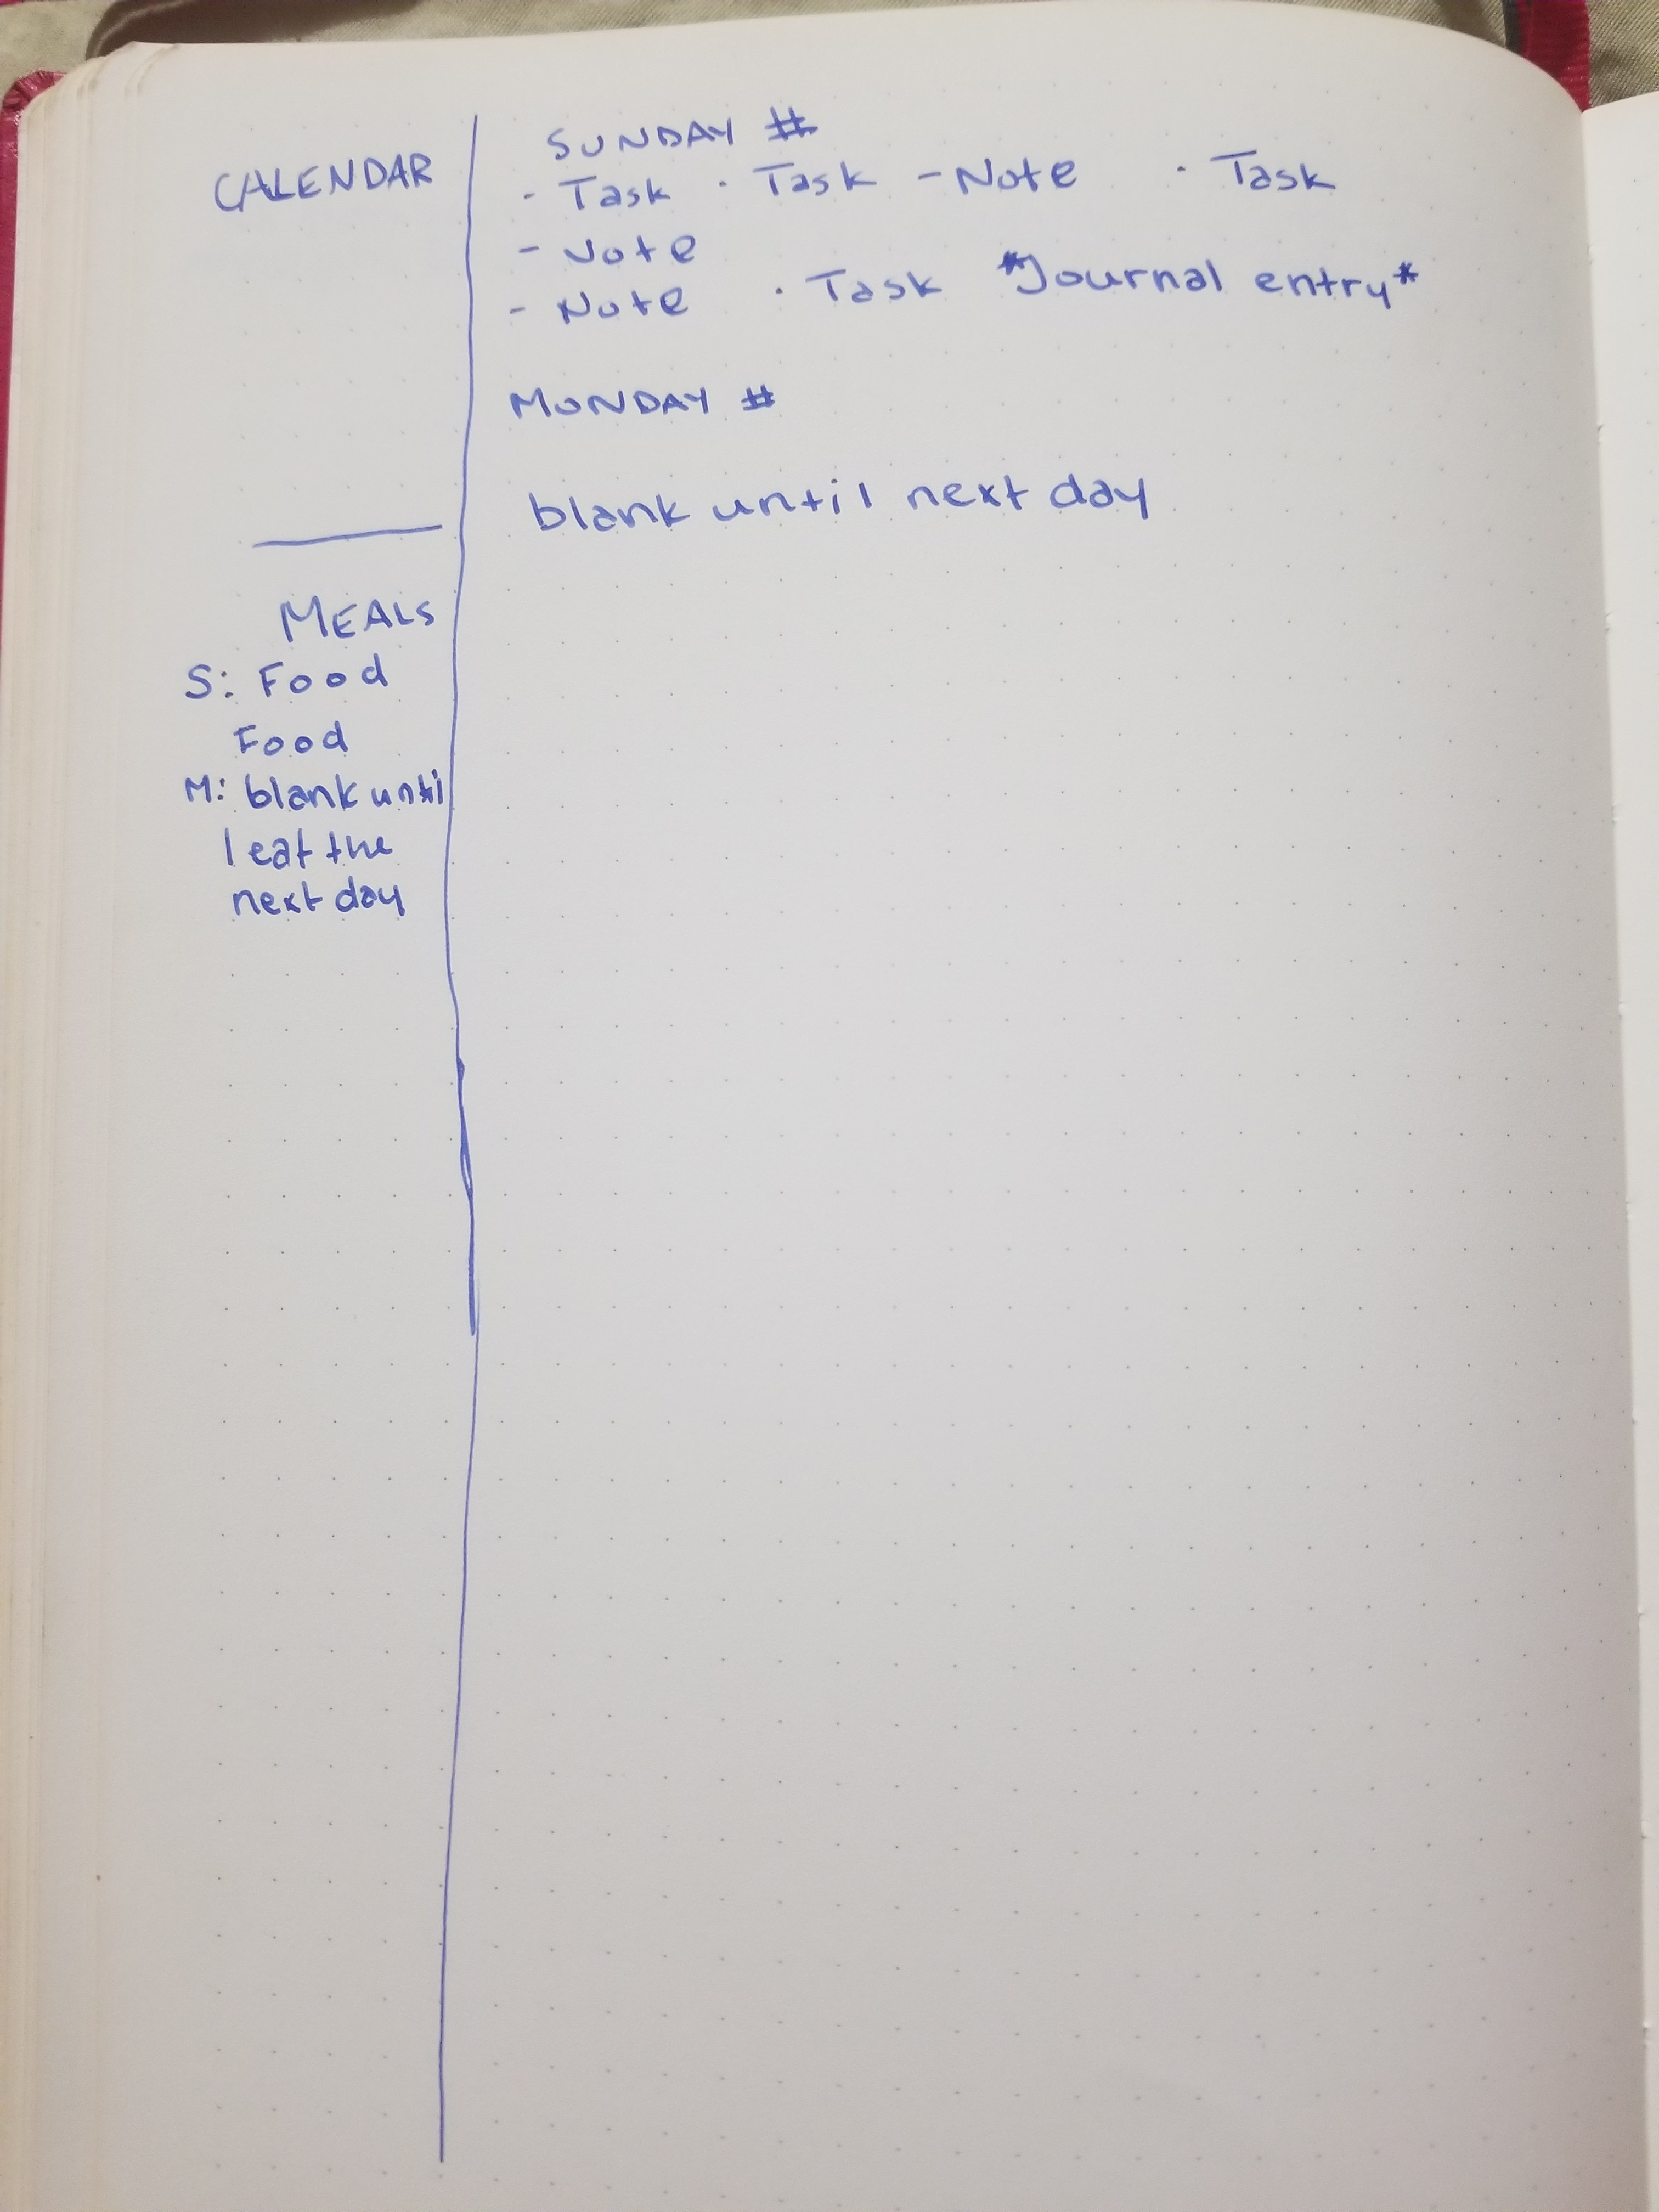 CALENDAR
MEALS
S: Food
Food
M: blank until
I eat the
next day
SUNDAY #
- Task · Task - Note · Task
- Note
- Note · Task *Journal entry*
MONDAY #
blank until next day